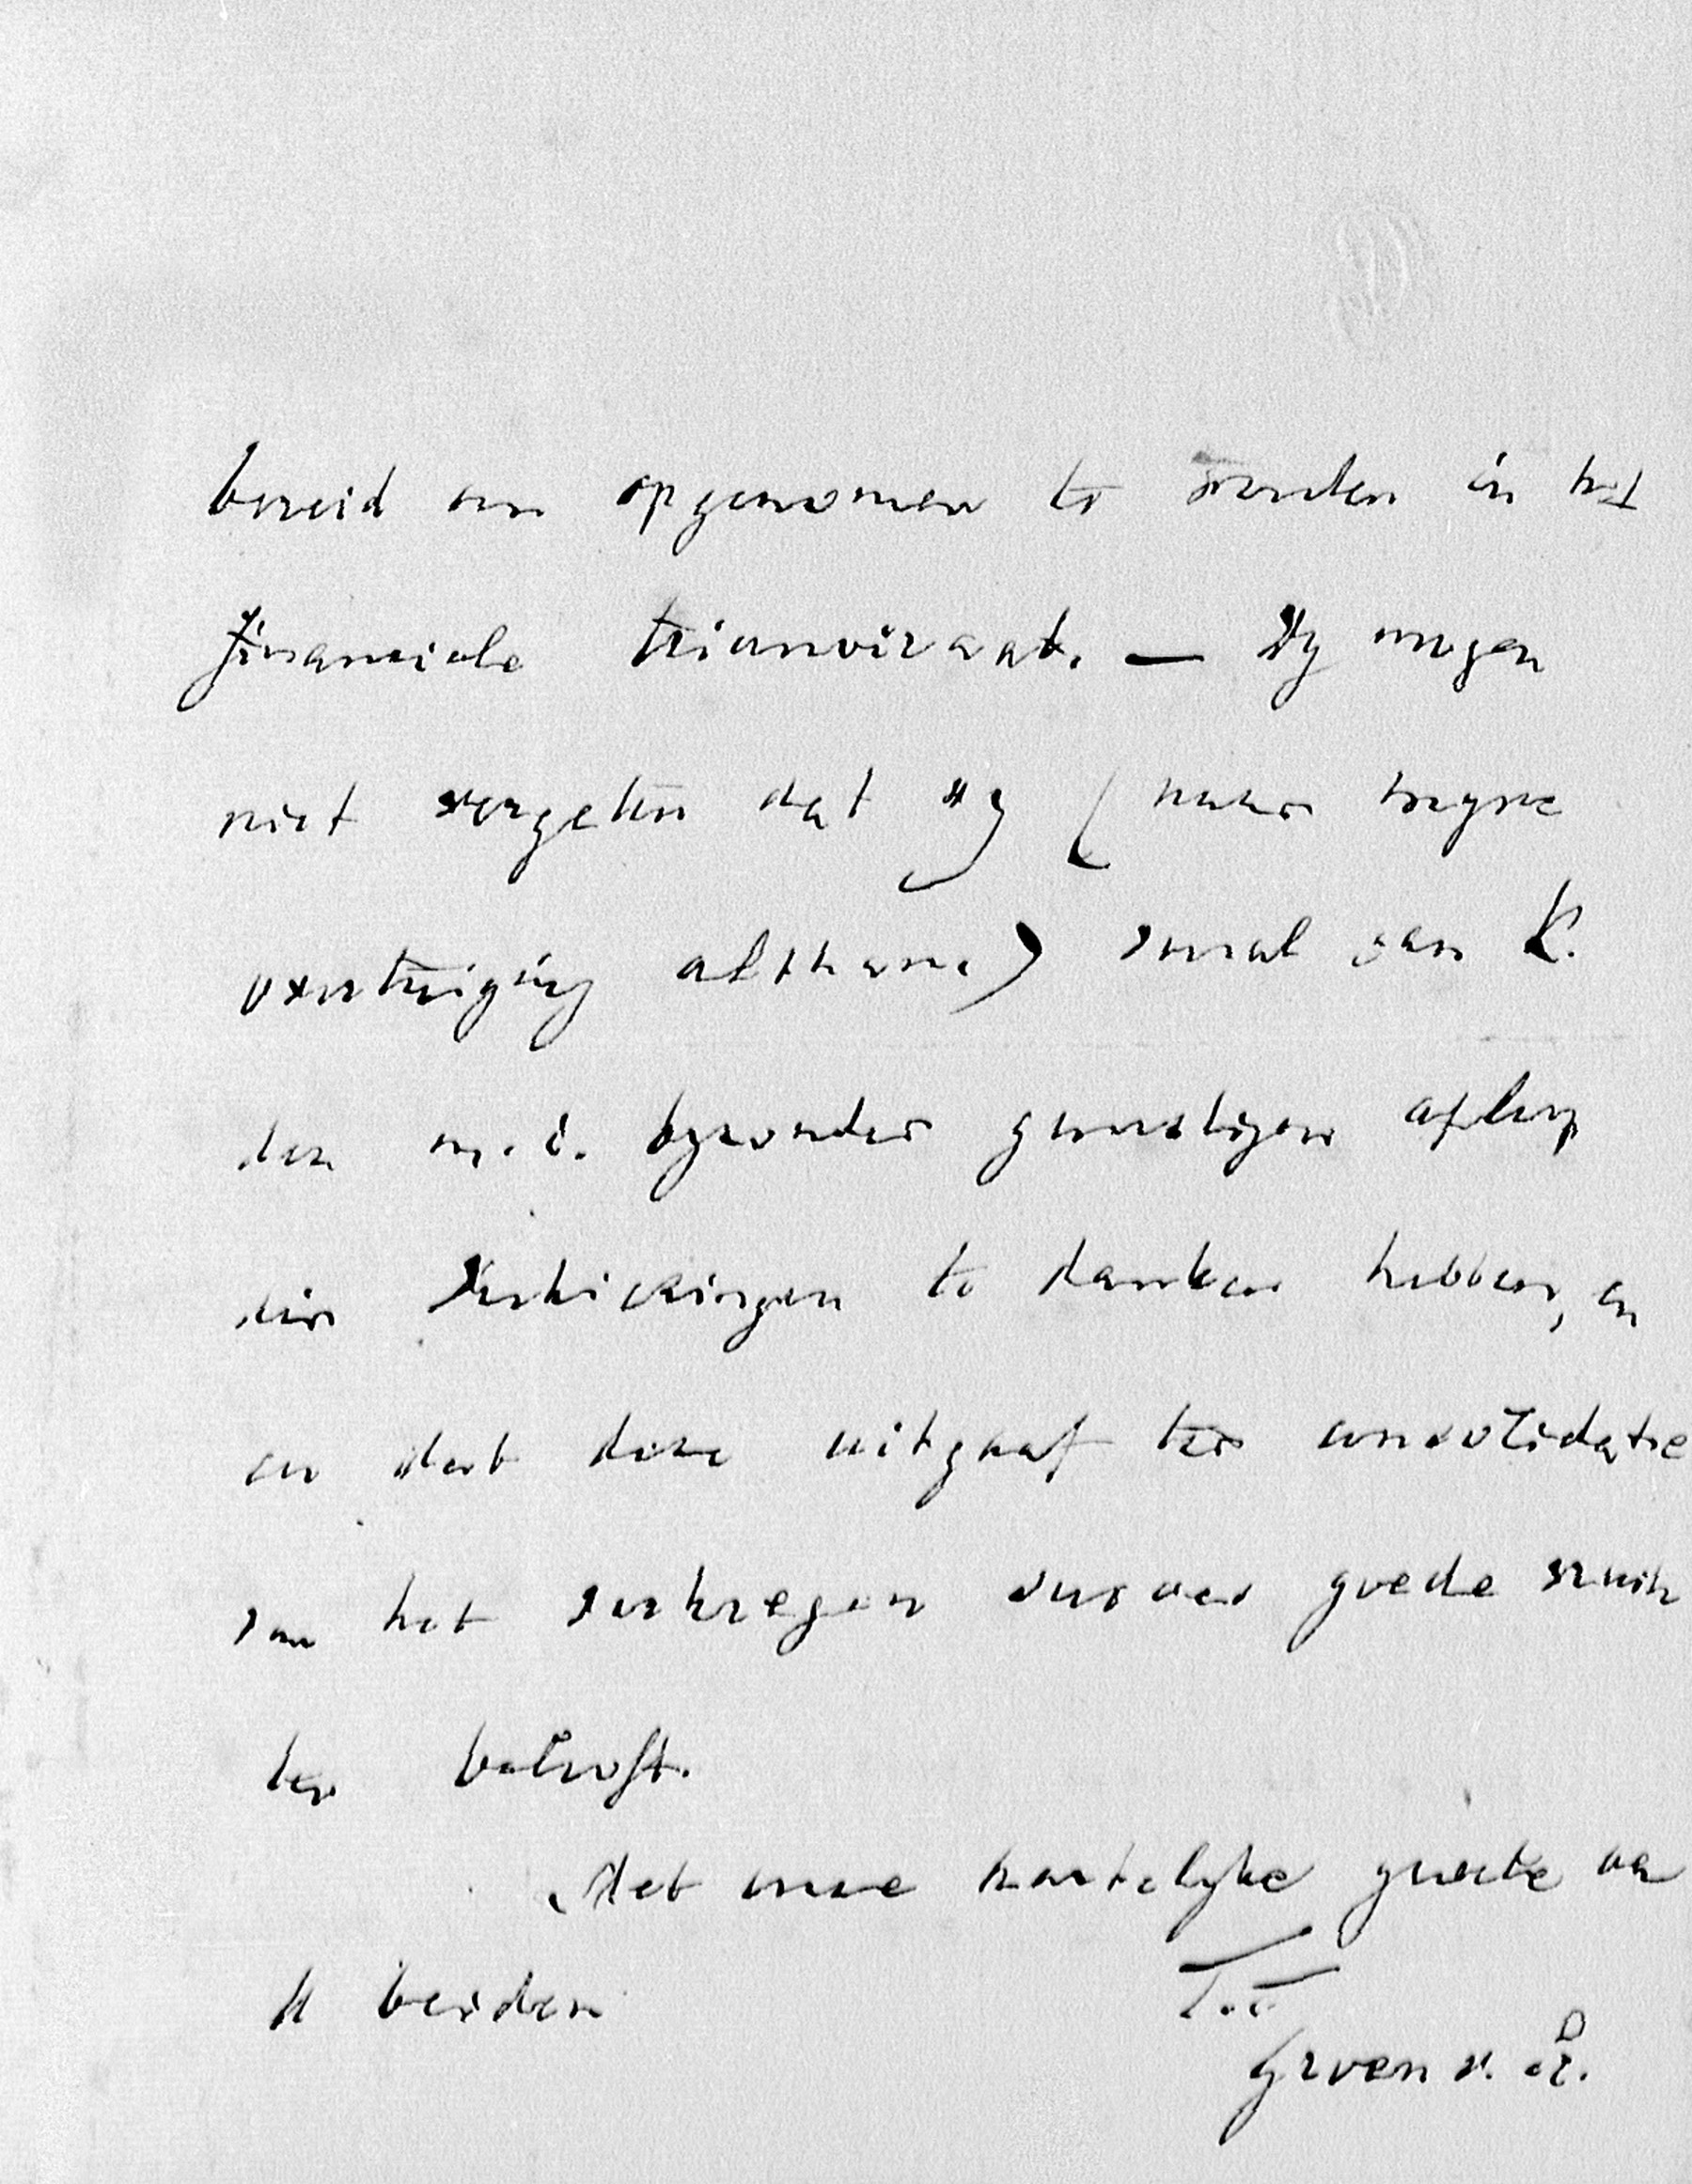 bereid om opgenomen te worden in het
financiele triumviraat. — Wy mogen
niet vergeten dat wy (naar myne
overtuiging althans) vooral aan K.
den m.i. byzonder gunstigen afloop
der verkiezingen te danken hebben, en
en dat deze uitgaaf ter consolidatie
van het verkregen succes goede vruch
ten belooft.
Met onze hartelyke groete aa
U beiden
T.t.
Groen v. P.